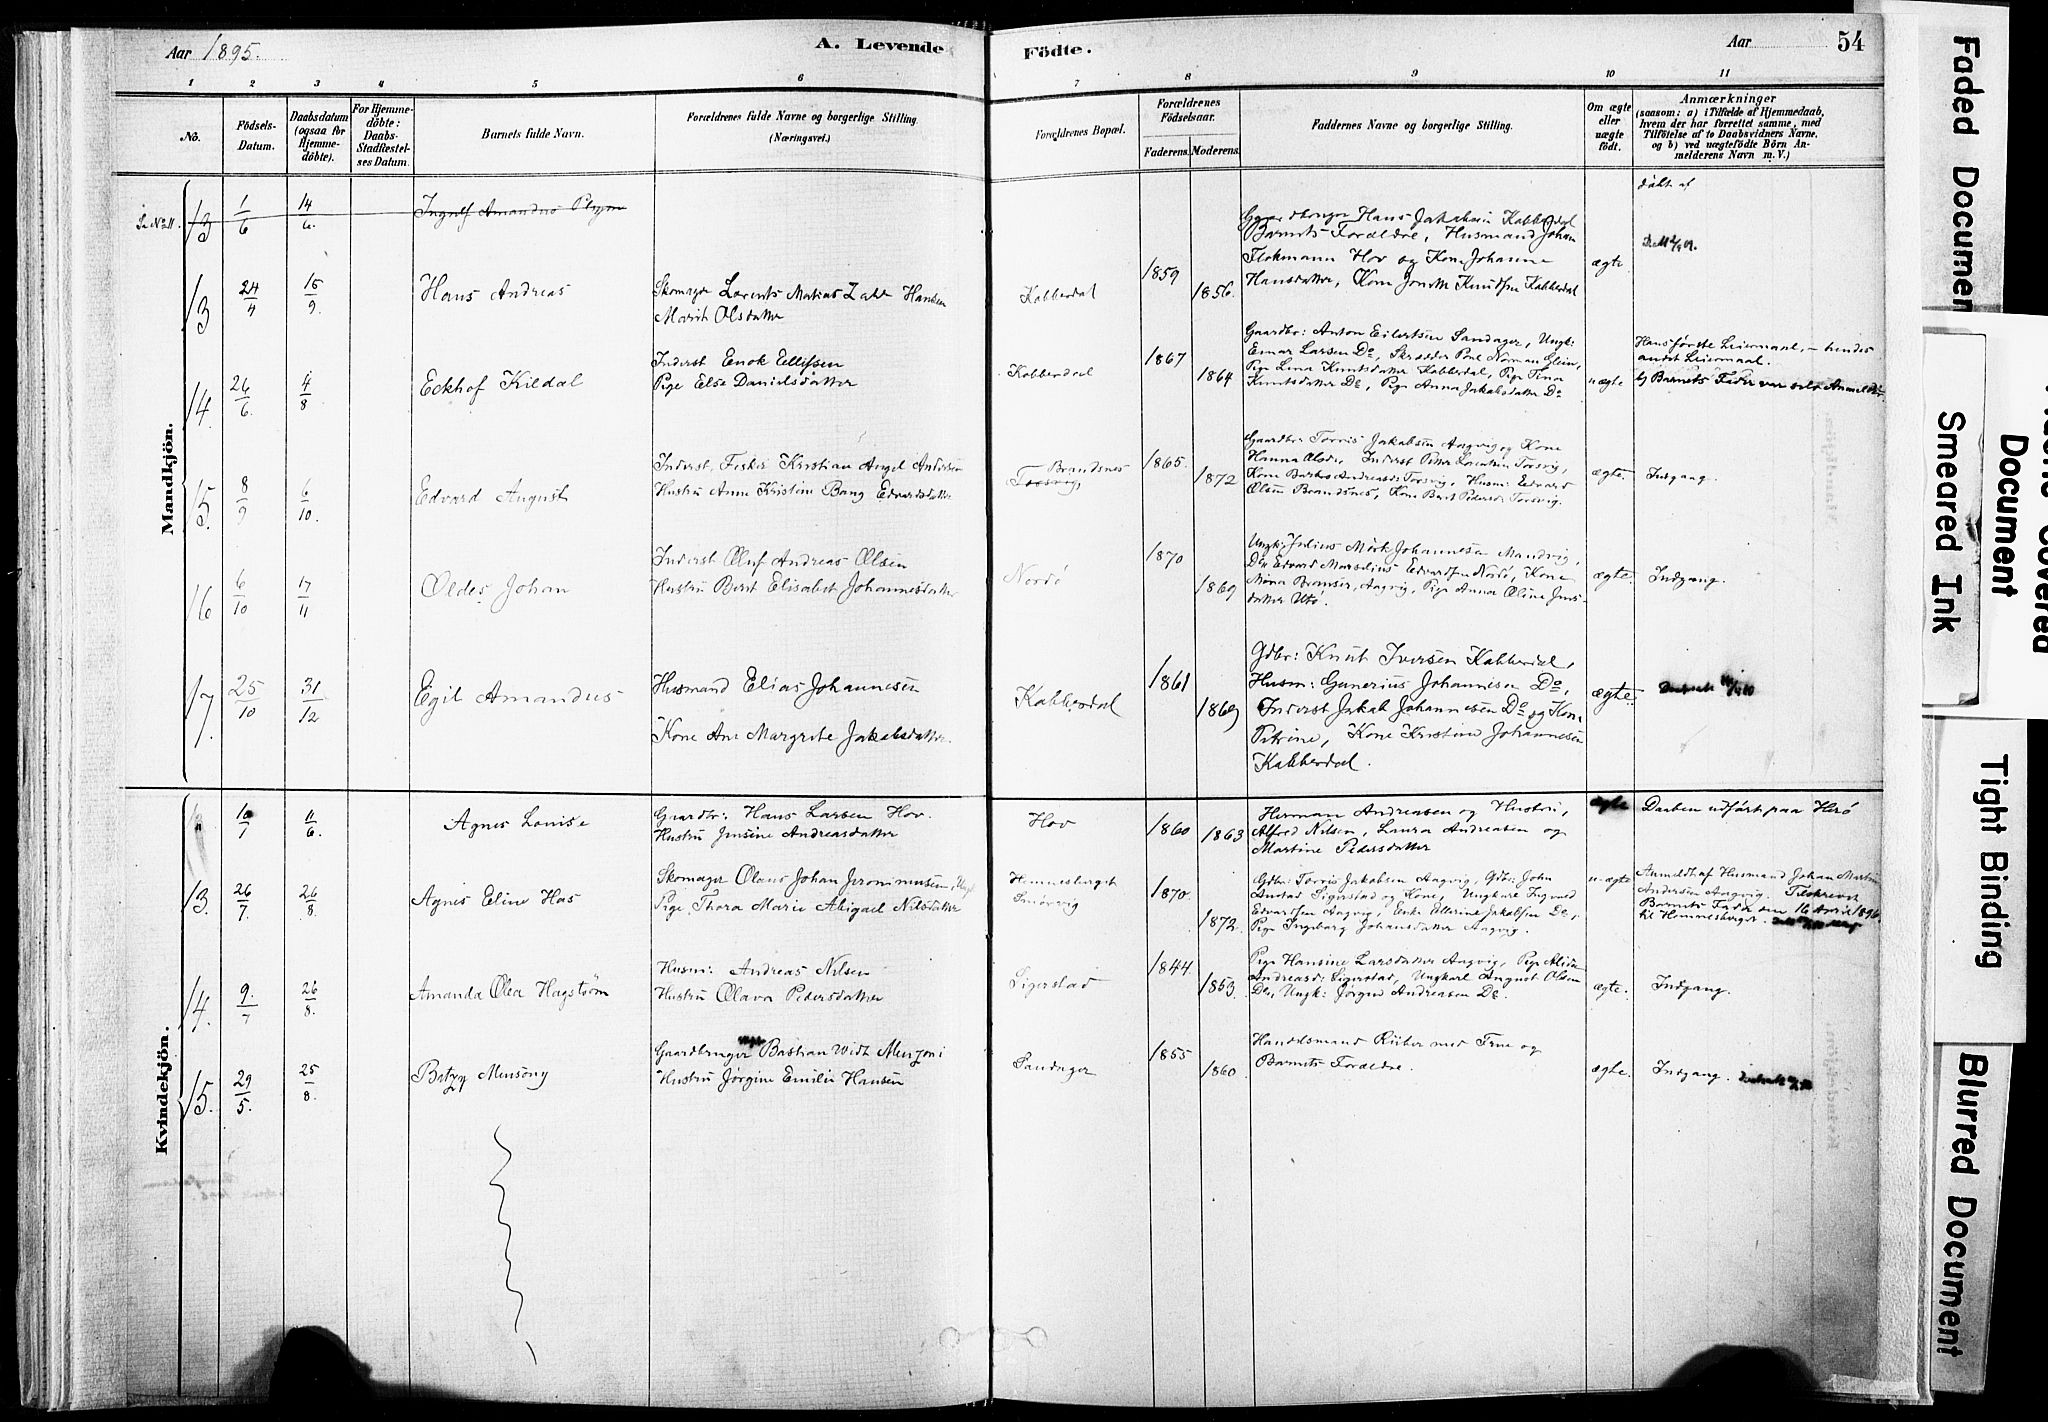 Aar 1895.
A. Levende
Födte.
Aar
54
1 2 3 4 5 6 7 8 9 10 11
No.
Födsels-
Datum.
Daabsdatum
(ogsaa for
Hjemme-
döbte).
For Hjemme-
döbte:
Daabs-
Stadfæstel-
ses Datum.
Barnets fulde Navn.
Forældrenes fulde Navne og borgerlige Stilling.
(Næringsvei.)
Forældrenes Bopæl.
Forældrenes
Födselsaar.
Faderens. Moderens.
Faddernes Navne og borgerlige Stilling.
Om ægte
eller
uægte
födt.
Anmærkninger
(saasom: a) i Tilfælde af Hjemmedaab,
hvem der har forrettet samme, med
Tilföielse af to Daabsvidners Navne,
og b) ved uægtefödte Börn An-
melderens Navn m. V.)
Mandkjön.
13 1/6 14/6 Ingolf Amandus
døbt af
13
24/4
15/9
Hans Andreas
Skomager Lorents Matias Hansen
Marit Olsdatter
Kabberdal
1859
1856.
Gaardbruger Hans Jakobsen Kabberdal
Barnets Forældre, Husmand Johan
Hov og Kone Johanna
Hansdatter, Kone Knudsen Kabberdal
ægte
14.
26/6.
4/8
Eckhof Kildal
Inderst Enok Ellefsen
Pige Else Danielsdatter
Kabberdal
1867
1864
Gaardbr: Anton Eilertsen Sandager, Ungk:
Einar Larsen Do, Skrædder
Pige Lina Knutsdatter Kabberdal, Pige Tina
Knutsdatter Do, Pige Anna Jakobsdatter Do
uægte
Hans förste Leiermaal, - hendes
andet Leiermaal.
b) Barnets Fader var selv Anmelder.
15.
8/9
6/10.
Edvard August
Inderst, Fisker Kristian Angel Andersen
Hustru Anne Kristine Bang Edvardsdatter
Brandsnes
Torsvig,
1865.
1872
Gaardbr. Torris Jakobsen Aagvig og Kone
Hanna Inderst Peter Lorentsen Torsvig,
Kone Andreasd: Torsvig, Husm: Edvard
Olsen Brandsnes, Kone Berit Pedersd: Torsvig.
ægte.
Indgang.
16
6/10
17/11
Oldes Johan
Inderst Oluf Andreas Olsen
Hustru Berit Elisabet Johannesdatter
Nordö
1870
1869
Ungk: Julius Mørk Johannesen Mandvig,
Do Edvard Marselius Edvardsen Nordö, Kone
Aagvig, Pige Anna Oline Jens-
datter Utö.
ægte.
Indgang.
17.
25/10
31/12
Egil Amandus
Husmand Elias Johannesen
Kone Ane Margrete Jakobsdatter.
Kabberdal
1861
1869
Gdbr: Knut Iversen Kabberdal,
Husm: Gunerius Johannesen Do,
Inderst Jakob Johannesen Do og Kone
Petrine, Kone Kristine Johannesen
Kabberdal.
ægte.
Kvindekjön.
Agnes Louise
Gaardbr: Hans Larsen Hov.
Hustru Jensine Andreasdatter
Hov
1860
1863
Herman Andreasen og Hustru,
Alfred Nilsen, Laura Andreasen og
Martine Pedersdatter
ægte
Daaben udført paa Herö
13.
26/7.
26/8
Agnes Eline Has
Skomager Olaus Johan Jeronimusen, Ungk
Pige Thora Marie Abigael Nilsdatter
Hemnesberget
1870.
1872.
Gdbr: Torris Jakobsen Aagvig, Gdbr: John
Sigerstad og Kone, Ungkarl Ingvald
Edvardsen Aagvig, Enke Ellerine Jakobsen Do,
Pige Ingeborg Johansdatter Aagvig.
u-ægte
Anmeldt af Husmand Johan Martin
Andersen Aagvig. Tilskrevet
Barnets Fader den 16 April 1896
til Hemnesberget.
14.
9/7
26/8.
Amanda Olea Hagstrøm
Husm: Andreas Nilsen
Hustru Olava Pedersdatter
Sigerstad
1844
1853.
Pige Hansine Larsdatter Aagvig, Pige Alida
Andreasd: Sigerstad, Ungkarl August Olsen
Do, Ungk: Jörgen Andreasen Do.
ægte.
Indgang.
15.
29/5.
25/8.
Betzy Mensony
Gaardbruger Bastian Widt Menzoni
Hustru Jörgine Emilie Hansen
Sandager
1855
1860.
Handelsmand Riiber med Frue og
Barnets Forældre.
ægte.
Indgang.
Faded Document
Document
Smeared Ink
Tight Binding
Blurred Document